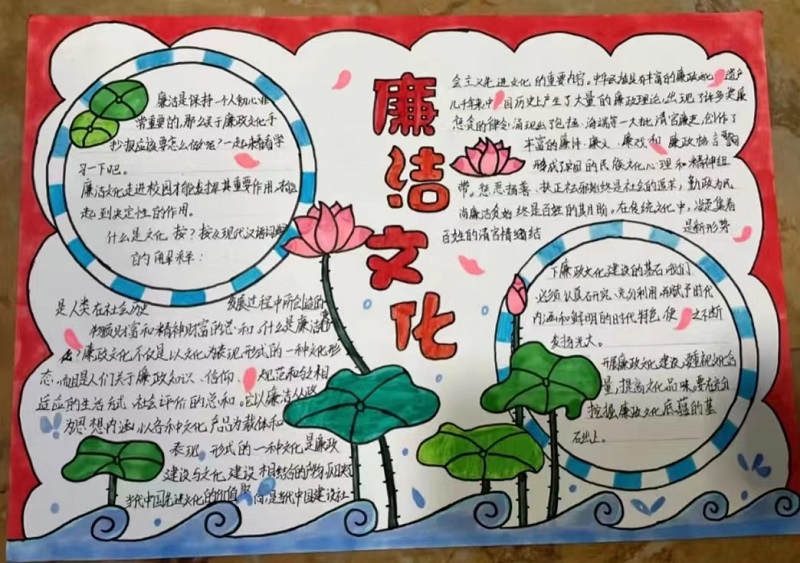 廉洁文化
廉洁是保持一个人初心非
常重要的,那么关于廉政文化手
抄报应该要怎么做呢?一起来看看学
习一下吧。
廉洁文化走进校园才能发挥其重要作用,
起到决定性的作用。
什么是文化 按?按众现代汉语词典
的解释:
是人类在社会历史 发展过程中所创造的
物质财富和精神财富的总和,什么是廉洁
廉政文化不仅是以文化为表现形式的一种文化形
态,而且是人们关于廉政知识、信仰、规范和与相
适应的生活方式 社会评价的总和。它以廉洁从政
为思想内涵以各种文化产品为载体和
表现 形式的一种文化是廉政
建设与文化建设相结合的产物,
当代中国先进文化的价值取向,是当代中国建设社
会主义先进文化的重要内容。中华民族具有丰富的廉政文化遗产
几千年来中 因历史上产生了大量的廉政理论,出现了许多
涌现出了包拯、海瑞等一大批清官廉吏,创作了
丰富的廉诗、廉文、廉戏和 廉政格言警
形成了 的民族文化心理和精神纽
带。惩恶扬善、扶正祛邪始终是社会的追求,勤政为民
尚廉洁 始终是百姓的期盼。在传统文化中,
百姓的清官情绪结 是新形势
下廉政文化建设的基石,我们
必须认真研究、充分利用,赋予时代
内涵和鲜明的时代特色,使之不断
发扬光大。
开展廉政文化建设,要重视文化含
量,提高文化品味,要充分
挖掘廉政文化底蕴的基
石出上。